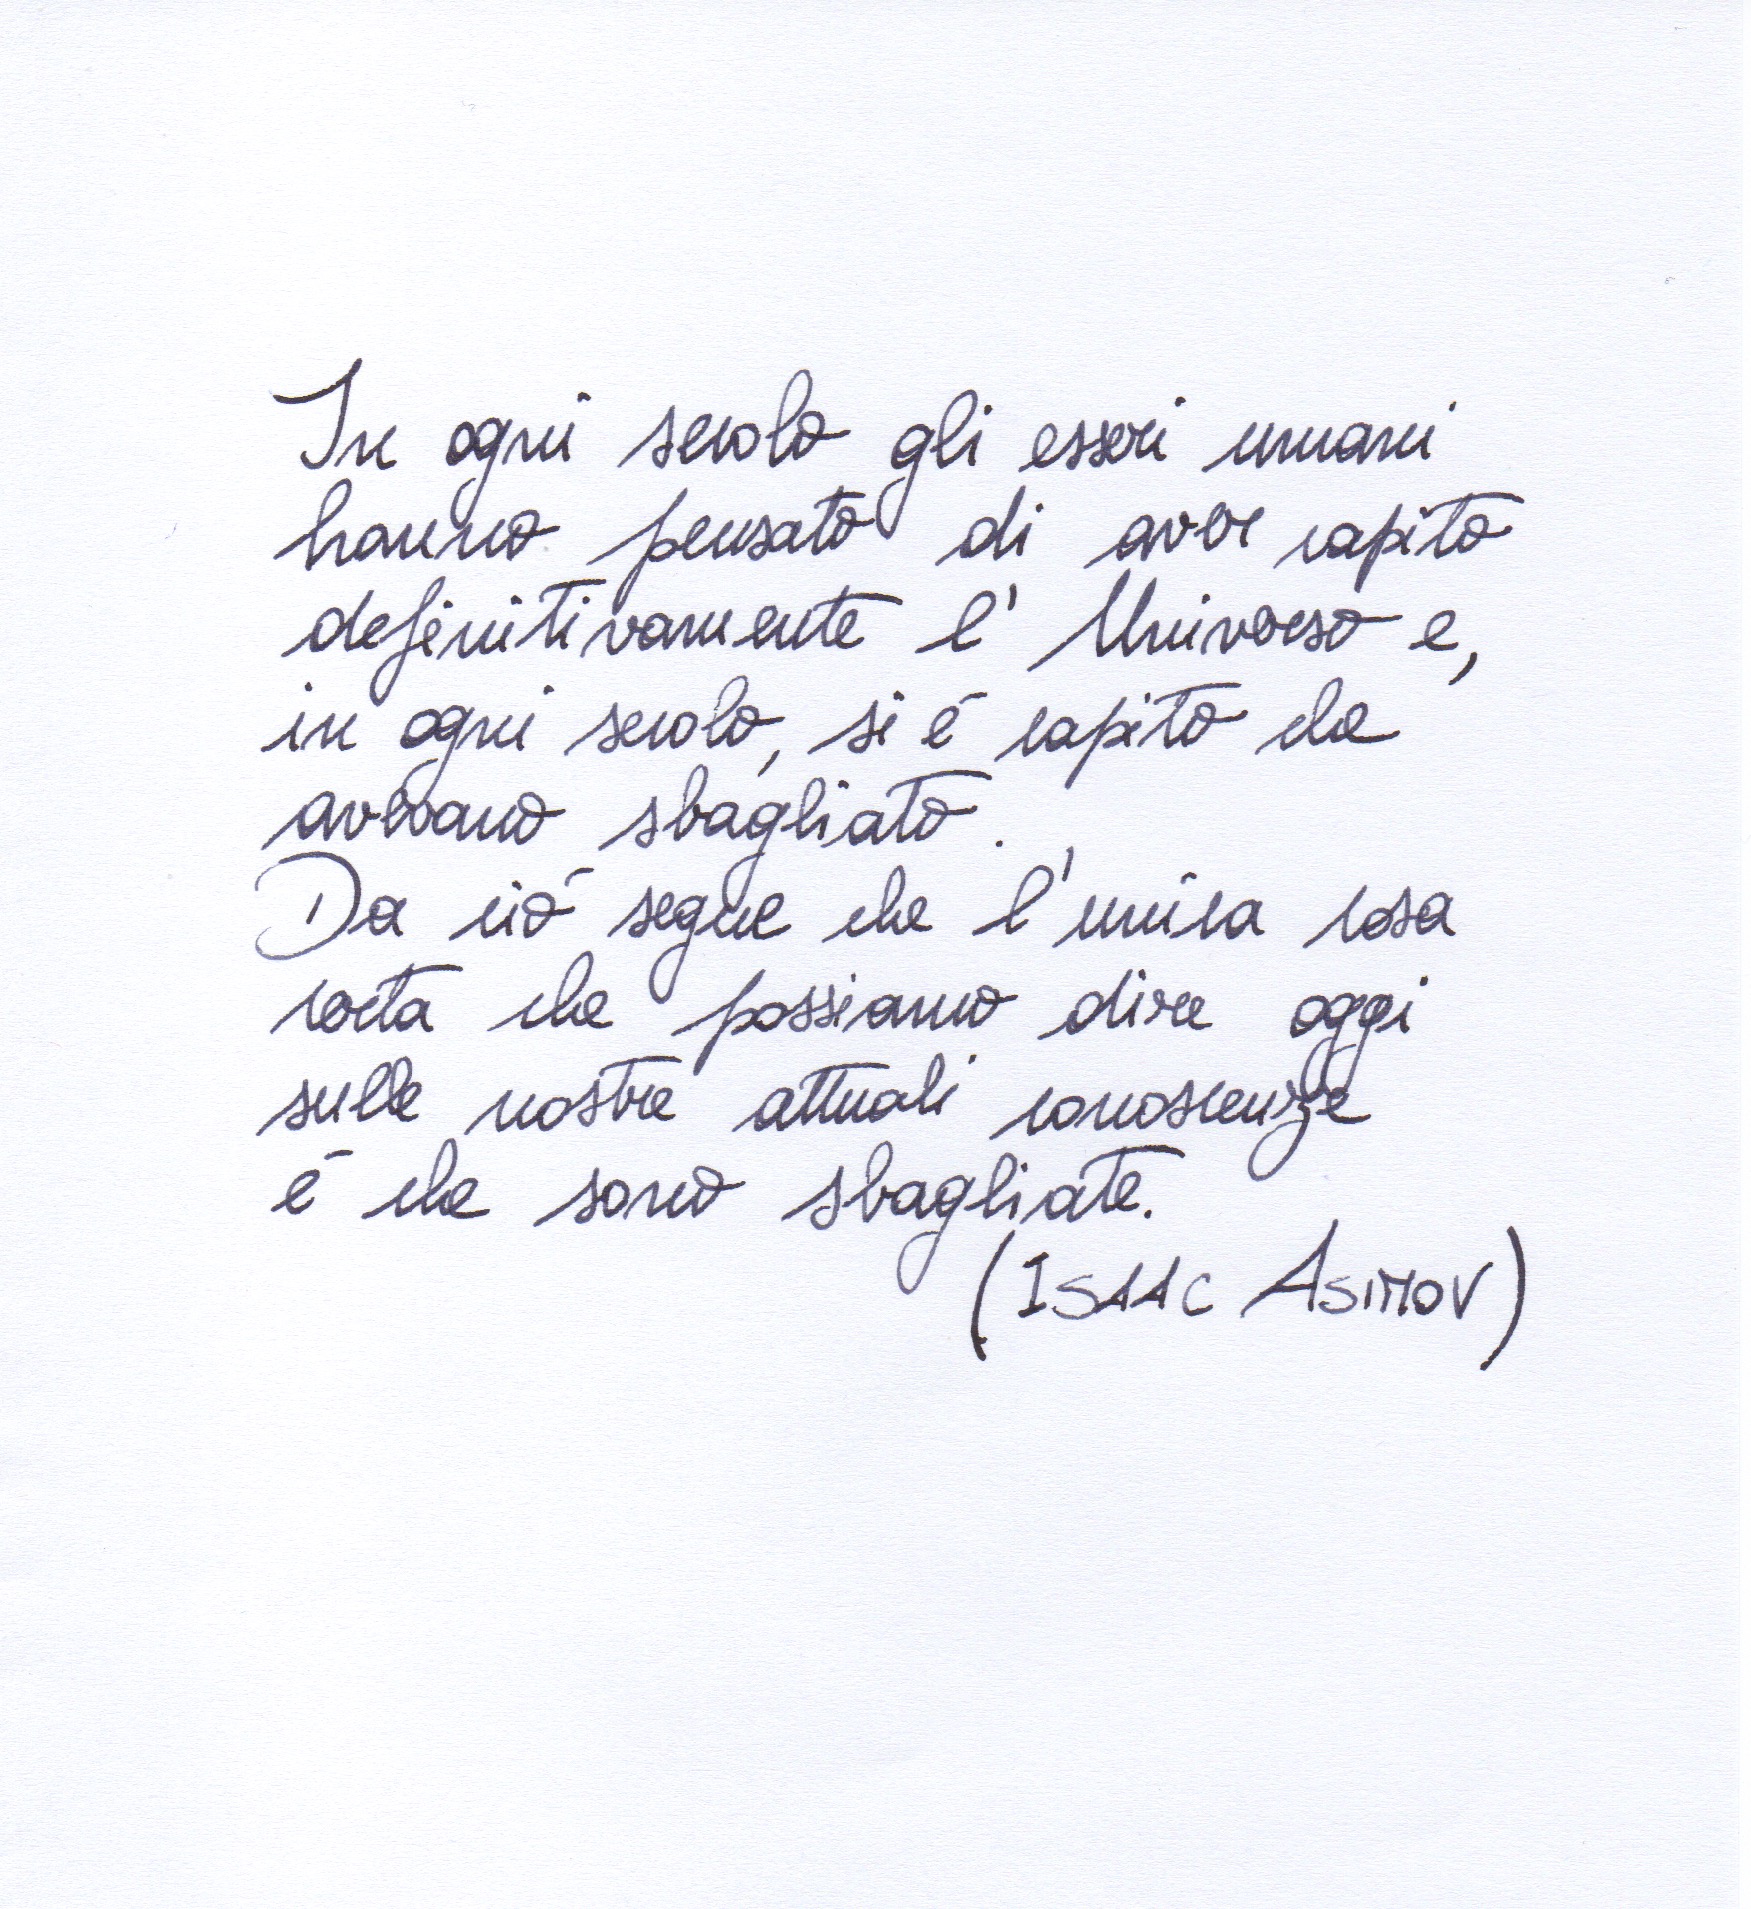 In ogni secolo gli esseri umani
hanno pensato di aver capito
definitivamente l'Universo e,
in ogni secolo, si é capito che
avevano sbagliato.
Da ció segue che l'unica cosa
certa che possiamo dire oggi
sulle nostre attuali conoscenze
é che sono sbagliate.
(ISAAC ASIMOV)